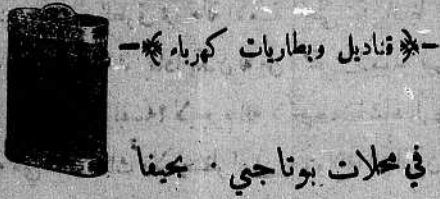 قناديل وبطاريات كهرباء
في محلات بوتاجي . بحيفا